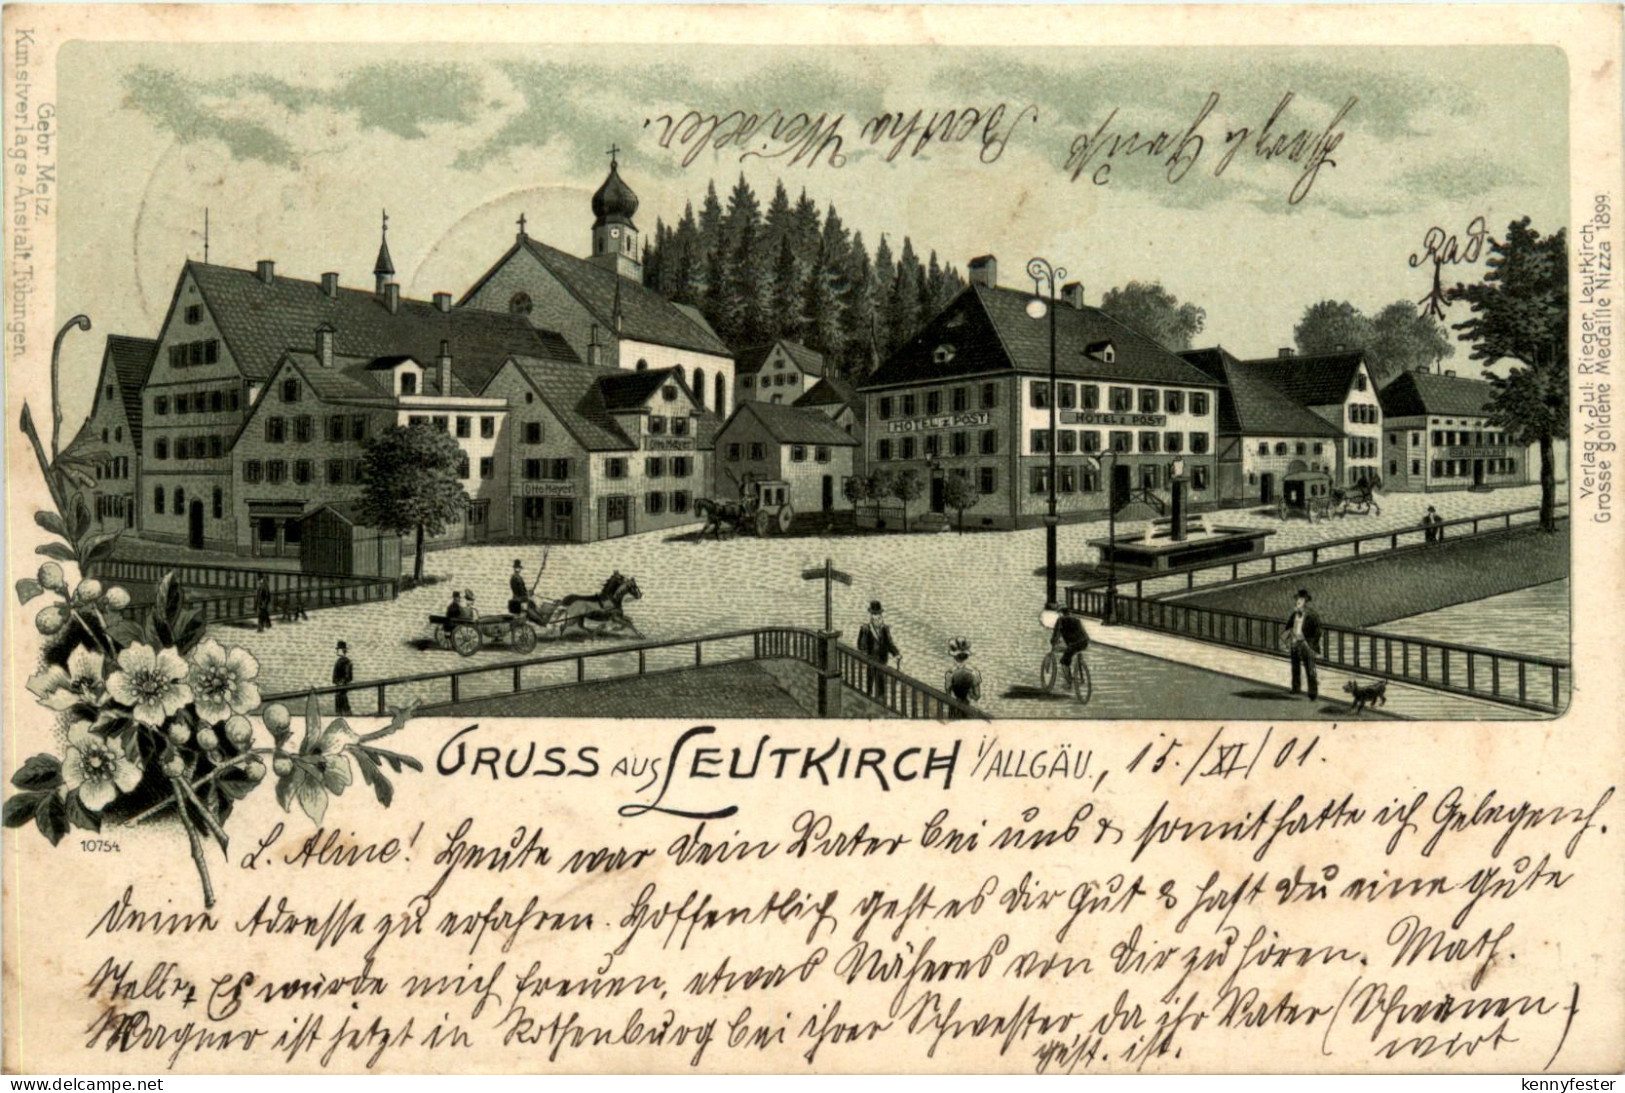 Gebr. Metz.
Kunstverlags-Anstalt Tübingen
Herzl. Gruß
Bertha Weixler.
Rad
Verlag v. Jul: Rieger, Leutkirch.
Grosse goldene Medaille Nizza 1899.
HOTEL z. POST
HOTEL z. POST
Otto Mayer
Otto Mayer
GRUSS AUS LEUTKIRCH i/ALLGÄU., 15./XI/01.
10754
L. Aline! Heute war Dein Vater bei uns & somit hatte ich Gelegenh.
Deine Adresse zu erfahren. Hoffentlich geht es Dir gut & hast Du eine gute
Stelle. Es würde mich freuen, etwas Näheres von Dir zu hören. Math.
Wagner ist jetzt in Rothenburg bei ihrer Schwester, da ihr Vater (Schwanen-
gest. ist. wirt)
kennyfester